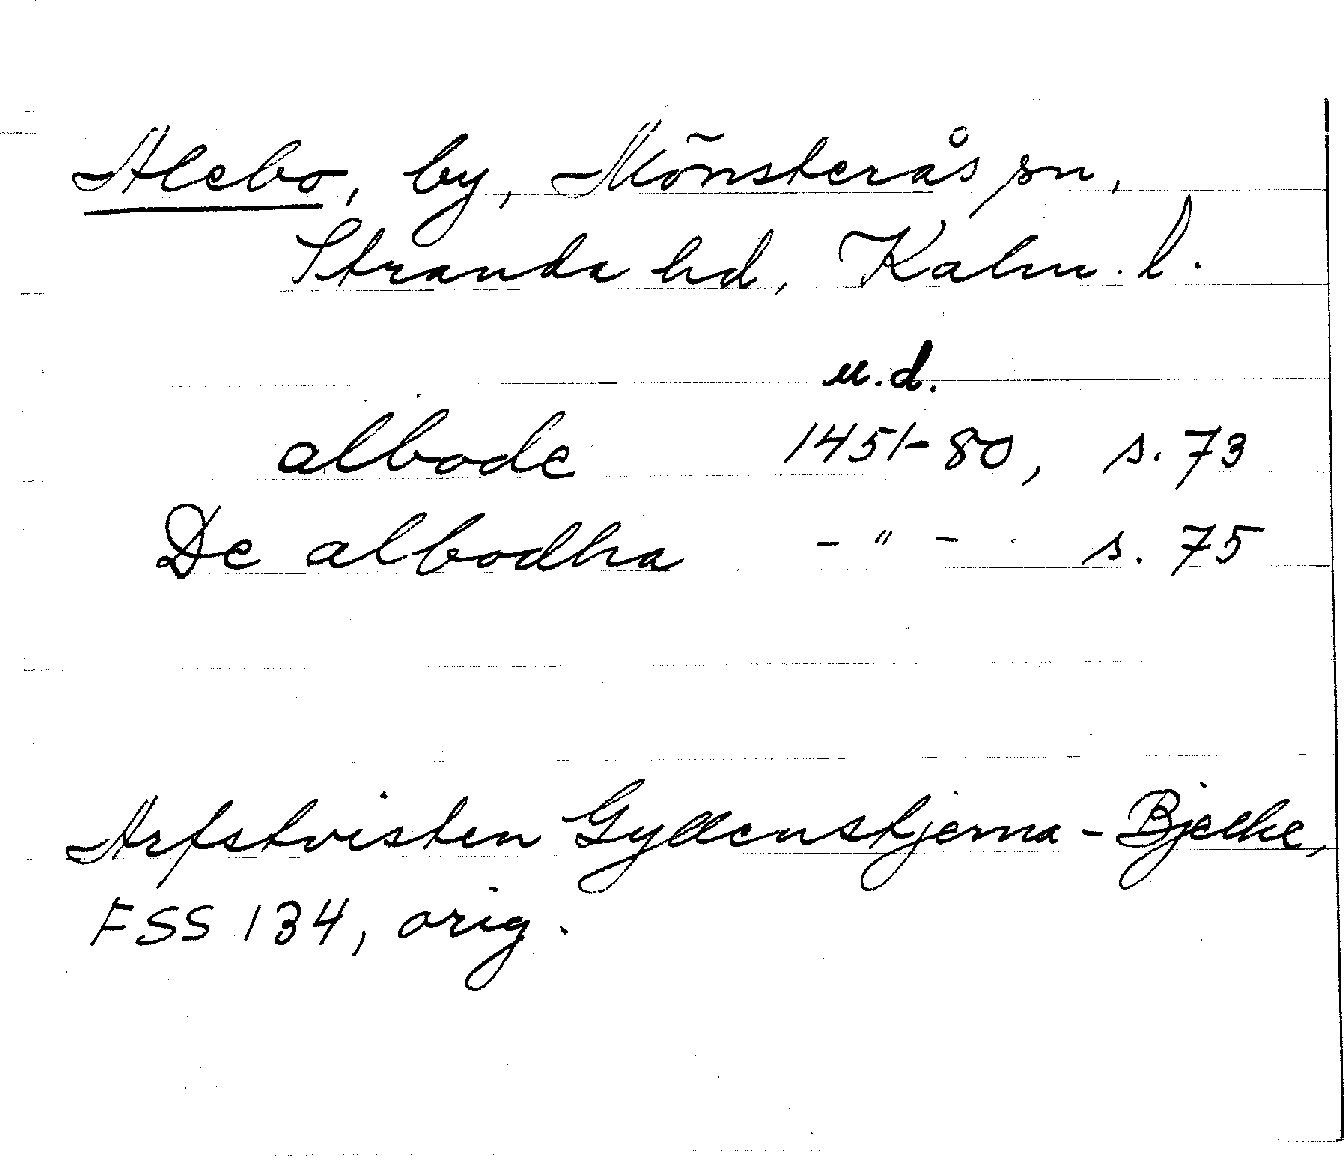 Alebo, by, Mönsterås sn,
Stranda hd, Kalm. l.
u.d.
albode 1451-80, s. 73
De albodha - " - s. 75
Arfstvisten Gyllenstjerna - Bjelke,
FSS 134, orig.